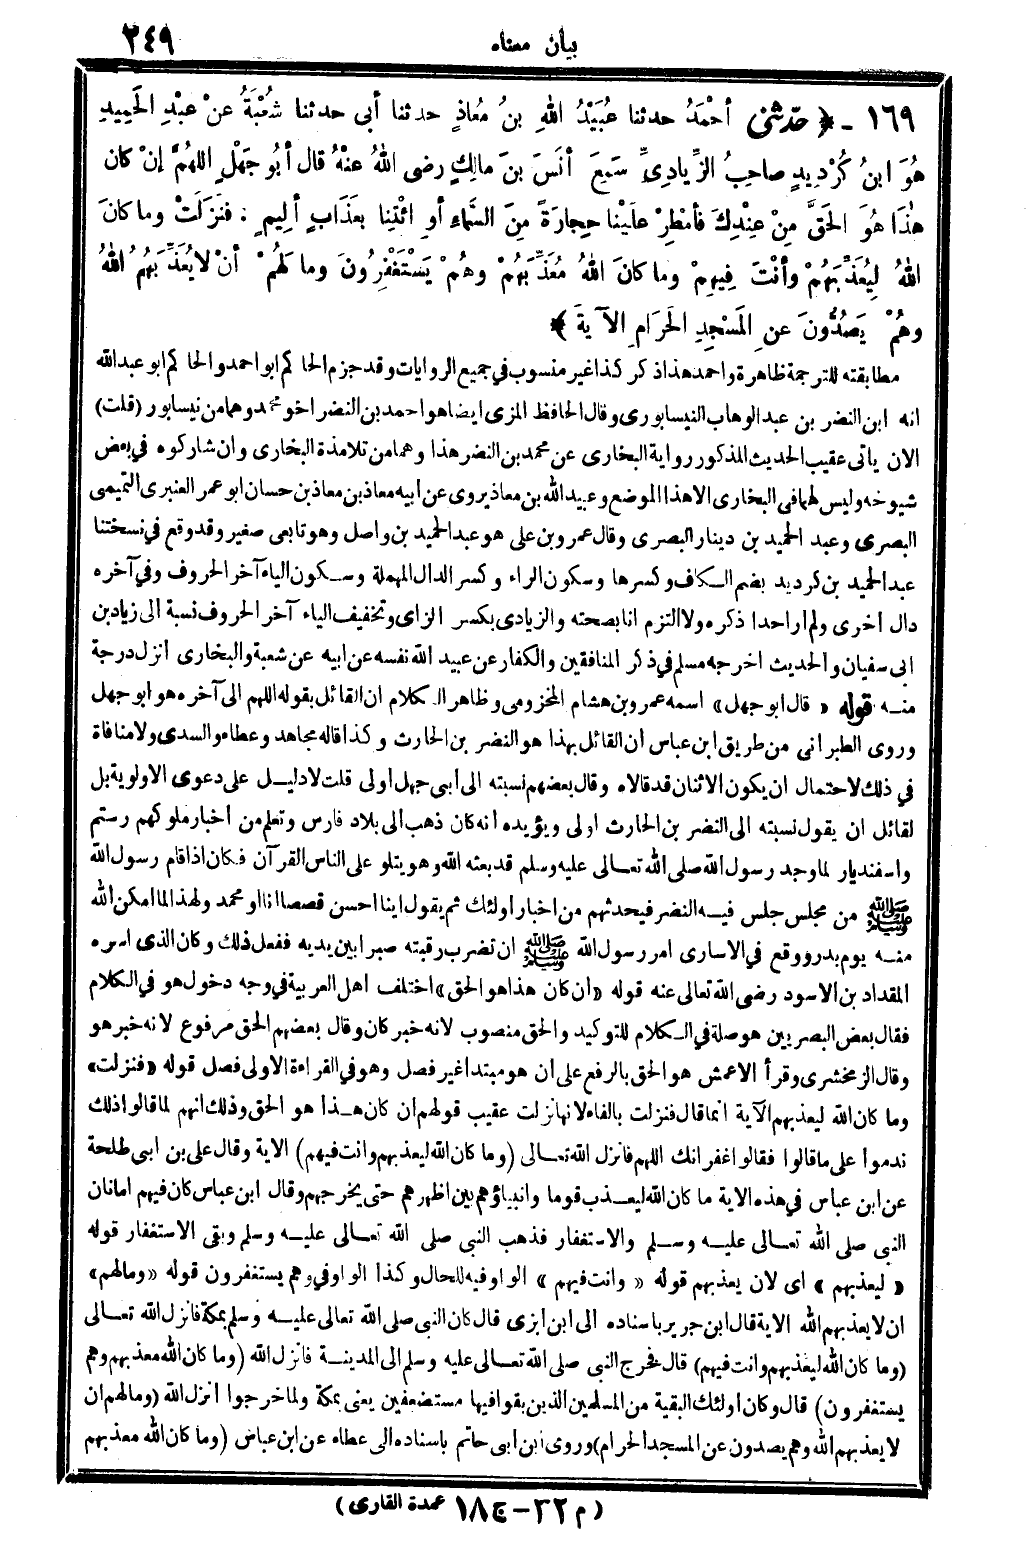 بيان معناه ٢٤٩
١٦٩ - ﴿ حدّثني أحْمَدُ حدثنا عُبَيْدُ اللهِ بنُ مُعاذٍ حدثنا أبى حدثنا شُعْبَةُ عنْ عبْدِ الحَمِيدِ
هُوَ ابنُ كُرْدِيدٍ صاحِبُ الزِّيادِىِّ سَمِعَ أنَسَ بنَ مالِكٍ رضى اللهُ عنْهُ قال أبُو جَهْلٍ اللهُمَّ إنْ كان
هٰذَا هُوَ الحَقَّ مِنْ عِنْدِكَ فأمْطِرْ علَيْنا حِجارَةً مِنَ السَّماءِ أوِ ائْتِنا بعَذَابٍ ألِيمٍ . فنَزَلَتْ وما كانَ
اللهُ لِيُعَذِّبَهُمْ وأنْتَ فِيهِمْ وما كانَ اللهُ مُعَذِّبَهُمْ وهُمْ يَسْتَغْفِرُونَ وما لَهُمْ أنْ لا يُعَذِّبَهُمُ اللهُ
وهُمْ يَصُدُّونَ عنِ المَسْجِدِ الحَرَامِ الآيةَ ﴾
مطابقته للترجمة ظاهرة واحمد هذا ذكر كذا غير منسوب في جميع الروايات وقد جزم الحاكم ابو احمد والحاكم ابو عبدالله
انه ابن النضر بن عبد الوهاب النيسابورى وقال الحافظ المزى ايضا هو احمد بن النضر اخو محمد وهما من نيسابور (قلت)
الان ياتى عقيب الحديث المذكور رواية البخارى عن محمد بن النضر هذا وهما من تلامذة البخارى وان شاركوه في بعض
شيوخه وليس لهما في البخارى الا هذا الموضع وعبيد الله بن معاذ يروى عن ابيه معاذ بن معاذ بن حسان ابو عمر العنبرى التميمى
البصرى وعبد الحميد بن دينار البصرى وقال عمرو بن على هو عبد الحميد بن واصل وهو تابعى صغير وقد وقع في نسختنا
عبد الحميد بن كرديد بضم الكاف وكسرها وسكون الراء وكسر الدال المهملة وسكون الياء آخر الحروف وفي آخره
دال أخرى ولم ار احدا ذكره ولا التزم انا بصحته والزيادى بكسر الزاى وتخفيف الياء آخر الحروف نسبة الى زياد بن
ابى سفيان والحديث اخرجه مسلم في ذكر المنافقين والكفار عن عبيد الله نفسه عن ابيه عن شعبة والبخارى انزل درجة
منه قوله «قال ابو جهل» اسمه عمرو بن هشام المخزومى وظاهر الكلام ان القائل بقوله اللهم الى آخره هو ابو جهل
وروى الطبرانى من طريق ابن عباس ان القائل بهذا هو النضر بن الحارث وكذا قاله مجاهد وعطاء والسدى ولا منافاة
في ذلك لاحتمال ان يكون الاثنان قد قالاه وقال بعضهم نسبته الى ابى جهل اولى قلت لا دليل على دعوى الاولوية بل
لقائل ان يقول نسبته الى النضر بن الحارث اولى ويؤيده انه كان ذهب الى بلاد فارس وتعلم من أخبار ملوكهم رستم
واسفنديار لما وجد رسول الله صلى الله تعالى عليه وسلم قد بعثه الله وهو يتلو على الناس القرآن فكان اذا قام رسول الله
ﷺ من مجلس جلس فيه النضر فيحدثهم من اخبار اولئك ثم يقول اينا احسن قصصا انا او محمد ولهذا لما امكن الله
منه يوم بدر ووقع في الاسارى امر رسول الله ﷺ ان تضرب رقبته صبرا بين يديه ففعل ذلك وكان الذى اسره
المقداد بن الاسود رضى الله تعالى عنه قوله «ان كان هذا هو الحق» اختلف اهل العربية في وجه دخول هو في الكلام
فقال بعض البصريين هو صلة في الكلام للتوكيد والحق منصوب لانه خبر كان وقال بعضهم الحق مرفوع لانه خبر هو
وقال الزمخشرى وقرأ الاعمش هو الحق بالرفع على ان هو مبتدا غير فصل وهو في القراءة الاولى فصل قوله «فنزلت»
وما كان الله ليعذبهم الآية انما قال فنزلت بالفاء لانها نزلت عقيب قولهم ان كان هذا هو الحق وذلك انهم لما قالوا ذلك
ندموا على ما قالوا فقالوا غفرانك اللهم فانزل الله تعالى (وما كان الله ليعذبهم وانت فيهم) الاية وقال على بن ابى طلحة
عن ابن عباس في هذه الاية ما كان الله ليعذب قوما وانبياؤهم بين اظهرهم حتى يخرجهم وقال ابن عباس كان فيهم امانان
النبى صلى الله تعالى عليه وسلم والاستغفار فذهب النبى صلى الله تعالى عليه وسلم وبقى الاستغفار قوله
«ليعذبهم» اى لان يعذبهم قوله «وانت فيهم» الواو فيه للحال وكذا الواو في وهم يستغفرون قوله «وما لهم»
ان لا يعذبهم الله الاية قال ابن جرير باسناده الى ابن ابزى قال كان النبى صلى الله تعالى عليه وسلم بمكة فانزل الله تعالى
(وما كان الله ليعذبهم وانت فيهم) قال فخرج النبى صلى الله تعالى عليه وسلم الى المدينة فانزل الله (وما كان الله معذبهم وهم
يستغفرون) قال وكان اولئك البقية من المسلمين الذين بقوا فيها مستضعفين يعنى بمكة ولما خرجوا انزل الله (وما لهم ان
لا يعذبهم الله وهم يصدون عن المسجد الحرام) وروى ابن ابى حاتم باسناده الى عطاء عن ابن عباض (وما كان الله معذبهم
(م ٣٢ – ج ١٨ عمدة القارى)